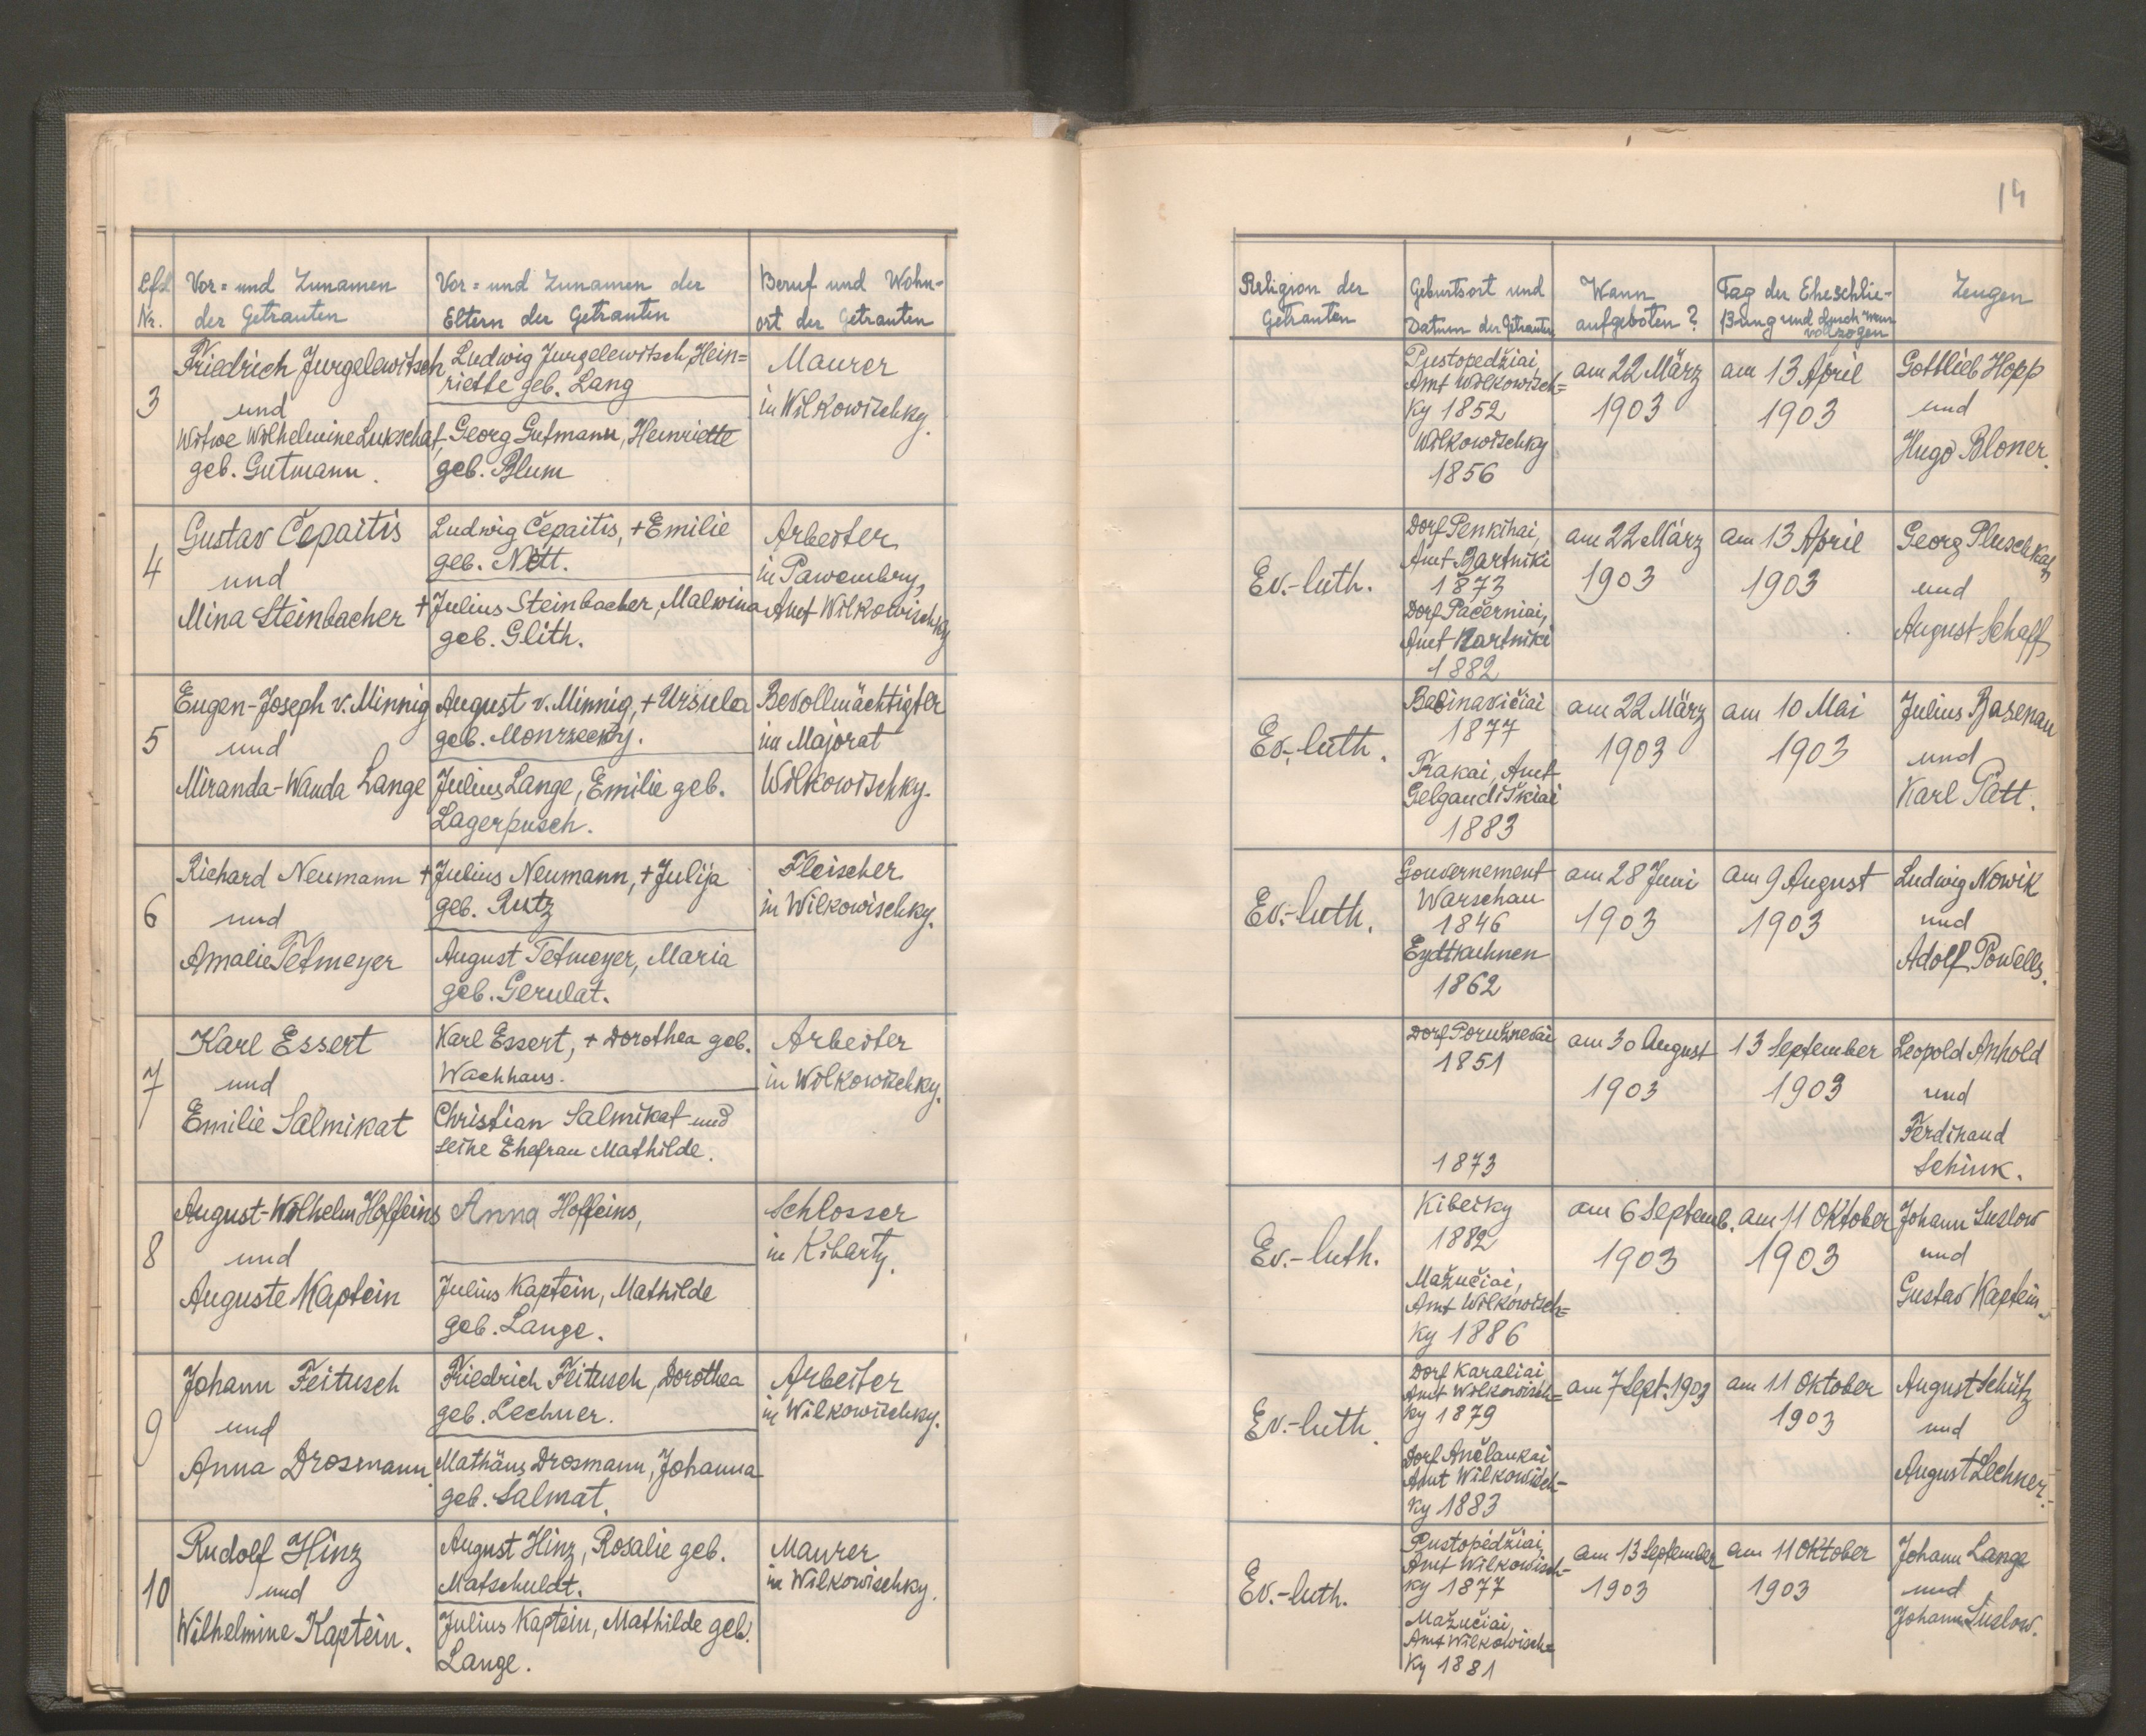 14
Lfd. Nr.
Vor= und Zunamen
der Getrauten
Vor= und Zunamen der
Eltern der Getrauten
Beruf und Wohn-
ort der Getrauten
Religion der
Getrauten
Geburtsort und
Datum der Getrauten
Wann
aufgeboten?
Tag der Eheschlie-
ßung und durch wem
vollzogen
Zeugen
3
Friedrich Jurgelewitsch
und
Witwe Wilhelmine Lukschat,
geb. Gutmann.
Ludwig Jurgelewitsch, Hein=
riette geb. Lang
Georg Gutmann, Henriette
geb. Blum
Maurer
in Wilkowischky.
Pustopedžiai,
Amt Wilkowisch=
ky 1852
Wilkowischky
1856
am 22 März
1903
am 13 April
1903
Gottlieb Hopp
und
Hugo Bloner.
4
Gustav Čepaitis
und
Mina Steinbacher
Ludwig Čepaitis, + Emilie
geb. Nett.
+ Julius Steinbacher, Malwina
geb. Glith.
Arbeiter
in Pawembry,
Amt Wilkowischky
Ev.-luth.
Dorf Penkihai,
Amt Bartniki
1873
Dorf Pačerniai,
Amt Bartniki
1882
am 22 März
1903
am 13 April
1903
Georg Pluschkat
und
August Schaff
5
Eugen-Joseph v. Minnig
und
Miranda-Wanda Lange
August v. Minnig, + Ursula
geb. Monrzecky.
Julius Lange, Emilie geb.
Lagerpusch.
Bevollmächtigter
im Majorat
Wilkowischky.
Ev.-luth.
Babinavičiai
1877
Trakai, Amt
Gelgaudiškiai
1883
am 22 März
1903
am 10 Mai
1903
Julius Basenau
und
Karl Patt.
6
Richard Neumann
und
Amalie Tetmeyer
+ Julius Neumann, + Julija
geb. Rutz
August Tetmeyer, Maria
geb. Gerulat.
Fleischer
in Wilkowischky.
Ev.-luth.
Gouvernement
Warschau
1846
Eydtkuhnen
1862
am 28 Juni
1903
am 9 August
1903
Ludwig Nowik
und
Adolf Powells.
7
Karl Essert
und
Emilie Salmikat
Karl Essert, + Dorothea geb.
Wachhaus.
Christian Salmikat und
seine Ehefrau Mathilde.
Arbeiter
in Wilkowischky.
Dorf Poružnevai
1851
1873
am 30 August
1903
13 September
1903
Leopold Anhold
und
Ferdinand
Schink.
8
August-Wilhelm Hoffeins
und
Auguste Kaptein
Anna Hoffeins,
Julius Kaptein, Mathilde
geb. Lange.
Schlosser
in Kibarty.
Ev.-luth.
Kibeiky
1882
Mažučiai,
Amt Wilkowisch=
ky 1886
am 6 Septemb.
1903
am 11 Oktober
1903
Johann Suslow
und
Gustav Kaptein.
9
Johann Feitusch
und
Anna Drosmann
Friedrich Feitusch, Dorothea
geb. Lechner.
Mathäus Drosmann, Johanna
geb. Salmat.
Arbeiter
in Wilkowischky.
Ev.-luth.
Dorf Karaliai
Amt Wilkowisch=
ky 1879
Dorf Ančlaukai
Amt Wilkowisch-
ky 1883
am 7 Sept. 1903
am 11 Oktober
1903
August Schütz
und
August Lechner.
10
Rudolf Hinz
und
Wilhelmine Kaptein.
August Hinz, Rosalie geb.
Matschuldt.
Julius Kaptein, Mathilde geb.
Lange.
Maurer
in Wilkowischky.
Ev.-luth.
Pustopédžiai,
Amt Wilkowisch-
ky 1877
Mažučiai,
Amt Wilkowisch=
ky 1881
am 13 September
1903
am 11 Oktober
1903
Johann Lange
und
Johann Suslow.